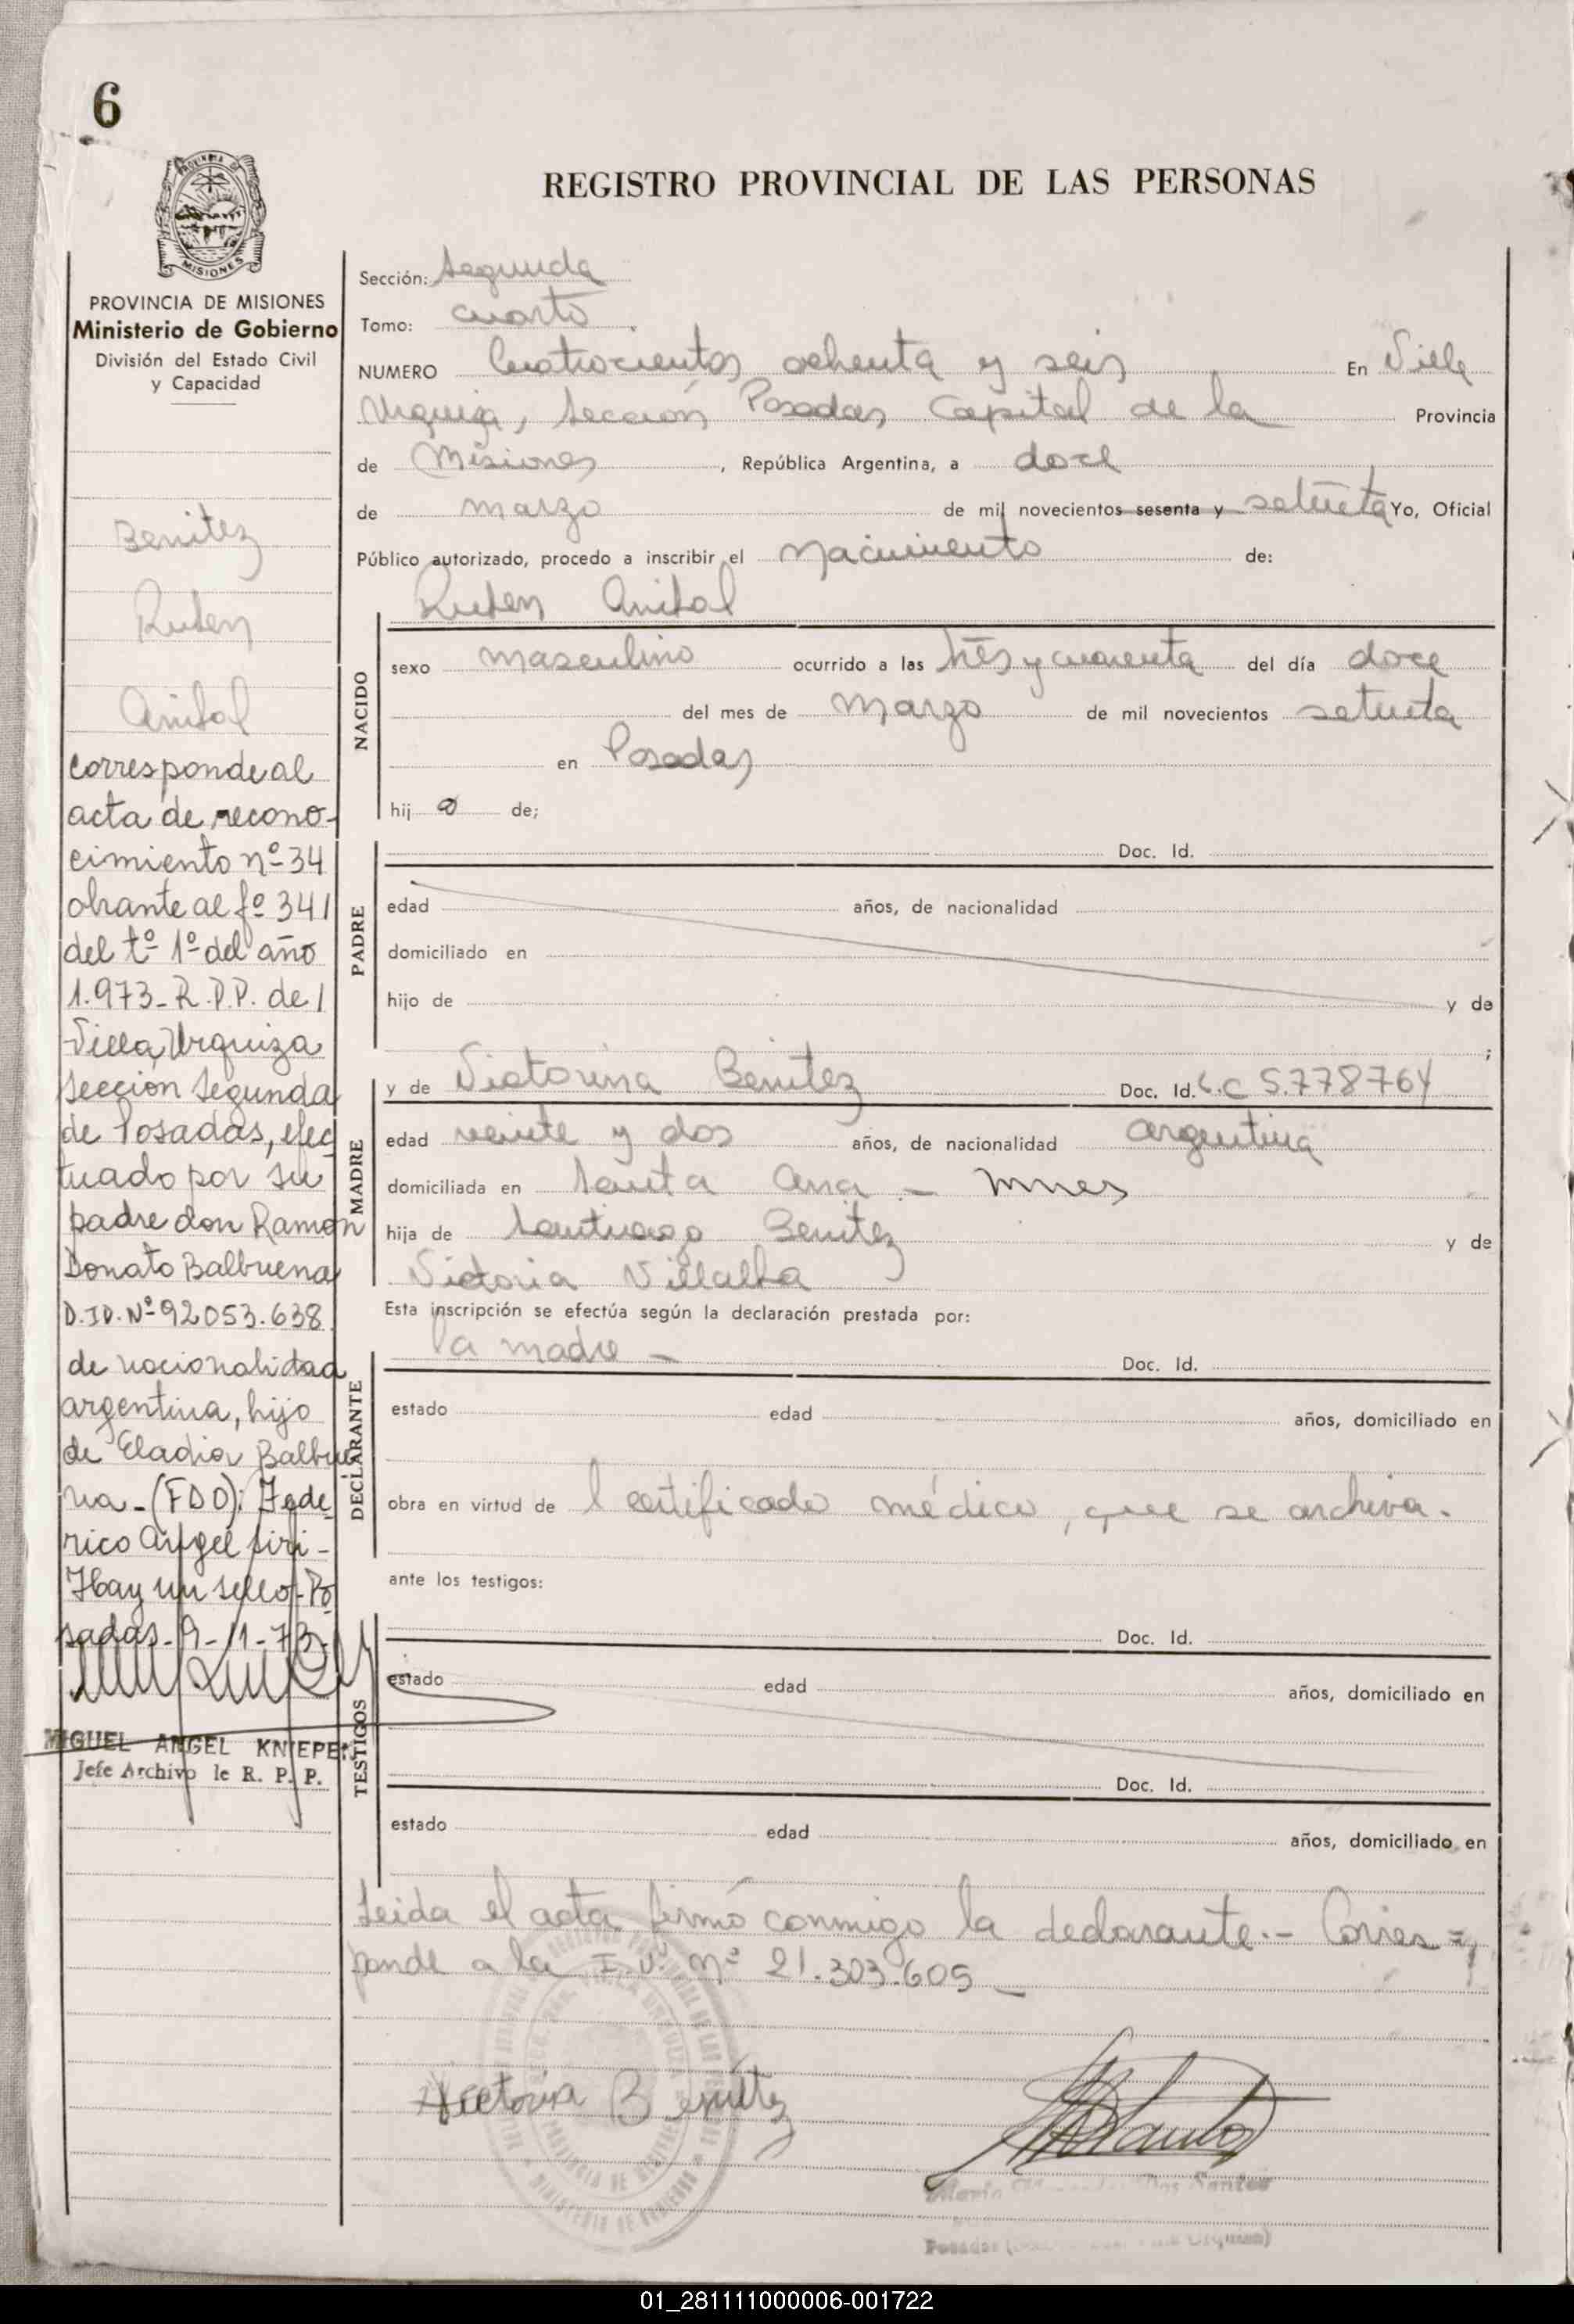 6
REGISTRO PROVINCIAL DE LAS PERSONAS
MISIONES
PROVINCIA DE MISIONES
Ministerio de Gobierno
División del Estado Civil
y Capacidad
Benitez
Ruben
Anibal
corresponde al
acta de recono-
cimiento nº 34
obrante al fº 341
del tº 1º del año
1.973_R.P.P. de
Villa Urquiza
sección segunda
de Posadas, efec
tuado por su
padre don Ramon
Donato Balbuena
D.ID.Nº 92053.638
de nacionalidad
argentina, hijo
de Eladia Balbue
na-(FDO): Fede
rico Angel Siri-
Hay un sello-Po
sadas-9-11-73.
MIGUEL ANGEL KNIEPER
Jefe Archivo de R. P. P.
Sección: Segunda
Tomo: cuarto
NUMERO Cuatrocientos ochenta y seis En Villa
Urquiza, Sección Posadas Capital de la Provincia
de Misiones, República Argentina, a doce
de marzo de mil novecientos sesenta y setenta Yo, Oficial
Público autorizado, procedo a inscribir el Nacimiento de:
Ruben Anibal
NACIDO
sexo masculino ocurrido a las tres y cuarenta del día doce
del mes de marzo de mil novecientos setenta
en Posadas
hij o de;
PADRE
Doc. Id.
edad años, de nacionalidad
domiciliado en
hijo de y de
;
MADRE
y de Victorina Benitez Doc. Id. L.C 5.778764
edad veinte y dos años, de nacionalidad argentina
domiciliada en Santa Ana - Mnes
hija de Santiago Benitez y de
Victoria Villalba
Esta inscripción se efectúa según la declaración prestada por:
DECLARANTE
la madre - Doc. Id.
estado edad años, domiciliado en
obra en virtud de l certificado médico, que se archiva.
ante los testigos:
TESTIGOS
Doc. Id.
estado edad años, domiciliado en
Doc. Id.
estado edad años, domiciliado en
Leida el acta firmó conmigo la declarante.- Corres=
ponde a la I.D. nº 21.303.605_
Victorina Benítez
Dos Santos
Posadas
01_281111000006-001722